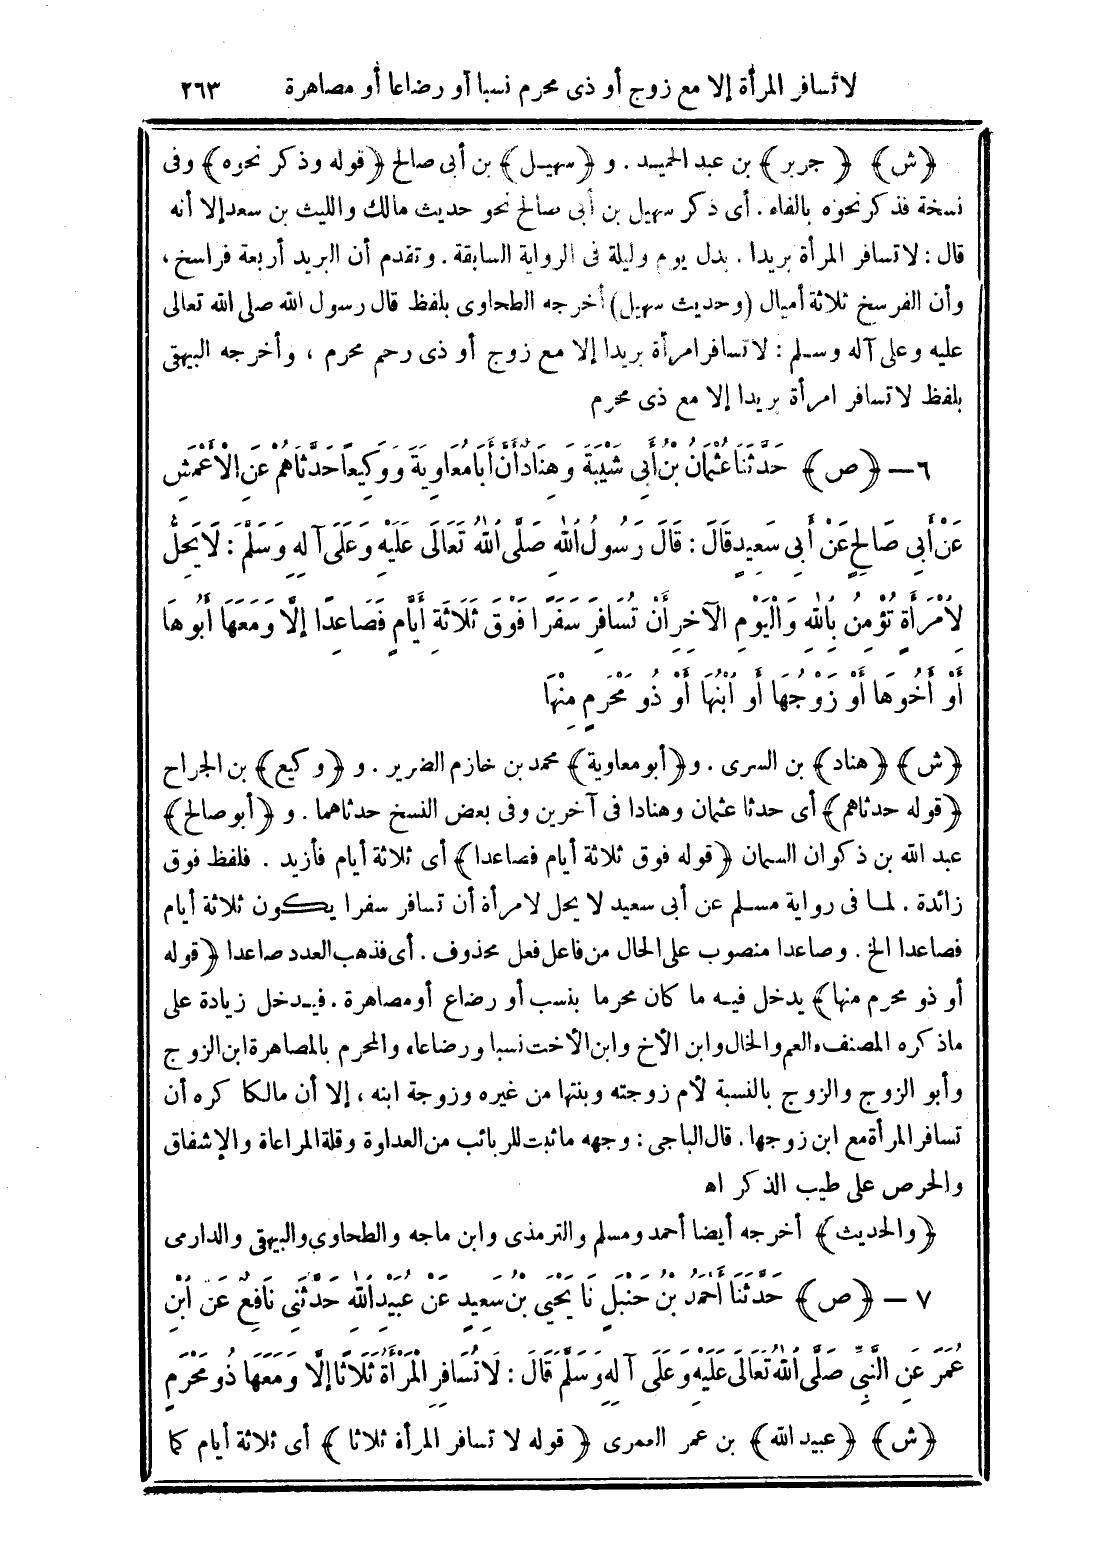 لا تسافر المرأة إلا مع زوج أو ذى محرم نسبا أو رضاعا أو مصاهرة ٢٦٣
﴿ش﴾ ﴿جرير﴾ بن عبد الحميد . و ﴿سهيل﴾ بن أبى صالح ﴿قوله وذكر نحوه﴾ وفى
نسخة فذكر نحوه بالفاء . أى ذكر سهيل بن أبى صالح نحو حديث مالك والليث بن سعد إلا أنه
قال : لا تسافر المرأة بريدا . بدل يوم وليلة فى الرواية السابقة . وتقدم أن البريد أربعة فراسخ ،
وأن الفرسخ ثلاثة أميال (وحديث سهيل) أخرجه الطحاوى بلفظ قال رسول الله صلى الله تعالى
عليه وعلى آله وسلم : لا تسافر امرأة بريدا إلا مع زوج أو ذى رحم محرم ، وأخرجه البيهقى
بلفظ لا تسافر امرأة بريدا إلا مع ذى محرم
٦ — ﴿ص﴾ حَدَّثَنَا عُثْمَانُ بْنُ أَبِي شَيْبَةَ وَهِنَادٌ أَنَّ أَبَا مُعَاوِيَةَ وَوَكِيعًا حَدَّثَاهُمْ عَنِ الْأَعْمَشِ
عَنْ أَبِي صَالِحٍ عَنْ أَبِي سَعِيدٍ قَالَ : قَالَ رَسُولُ اللهِ صَلَّى اللهُ تَعَالَى عَلَيْهِ وَعَلَى آلِهِ وَسَلَّمَ : لَا يَحِلُّ
لِامْرَأَةٍ تُؤْمِنُ بِاللهِ وَالْيَوْمِ الْآخِرِ أَنْ تُسَافِرَ سَفَرًا فَوْقَ ثَلَاثَةِ أَيَّامٍ فَصَاعِدًا إِلَّا وَمَعَهَا أَبُوهَا
أَوْ أَخُوهَا أَوْ زَوْجُهَا أَوِ ابْنُهَا أَوْ ذُو مَحْرَمٍ مِنْهَا
﴿ش﴾ ﴿هناد﴾ بن السرى . و﴿أبو معاوية﴾ محمد بن خازم الضرير . و ﴿وكيع﴾ بن الجراح
﴿قوله حدثاهم﴾ أى حدثا عثمان وهنادا فى آخرين وفى بعض النسخ حدثاهما . و ﴿أبو صالح﴾
عبد الله بن ذكوان السمان ﴿قوله فوق ثلاثة أيام فصاعدا﴾ أى ثلاثة أيام فأزيد . فلفظ فوق
زائدة . لما فى رواية مسلم عن أبى سعيد لا يحل لامرأة أن تسافر سفرا يكون ثلاثة أيام
فصاعدا الخ . وصاعدا منصوب على الحال من فاعل فعل محذوف . أى فذهب العدد صاعدا ﴿قوله
أو ذو محرم منها﴾ يدخل فيه ما كان محرما بنسب أو رضاع أو مصاهرة . فيدخل زيادة على
ماذكره المصنف، العم والخال وابن الأخ وابن الأخت نسبا ورضاعا، والمحرم بالمصاهرة ابن الزوج
وأبو الزوج والزوج بالنسبة لأم زوجته وبنتها من غيره وزوجة ابنه ، إلا أن مالكا كره أن
تسافر المرأة مع ابن زوجها . قال الباجى : وجهه ما ثبت للربائب من العداوة وقلة المراعاة والإشفاق
والحرص على طيب الذكر اه
﴿والحديث﴾ أخرجه أيضا أحمد ومسلم والترمذى وابن ماجه والطحاوى والبيهقى والدارمى
٧ — ﴿ص﴾ حَدَّثَنَا أَحْمَدُ بْنُ حَنْبَلٍ نَا يَحْيَى بْنُ سَعِيدٍ عَنْ عُبَيْدِ اللهِ حَدَّثَنِي نَافِعٌ عَنِ ابْنِ
عُمَرَ عَنِ النَّبِيِّ صَلَّى اللهُ تَعَالَى عَلَيْهِ وَعَلَى آلِهِ وَسَلَّمَ قَالَ : لَا تُسَافِرِ الْمَرْأَةُ ثَلَاثًا إِلَّا وَمَعَهَا ذُو مَحْرَمٍ
﴿ش﴾ ﴿عبيد الله﴾ بن عمر العمرى ﴿قوله لا تسافر المرأة ثلاثا﴾ أى ثلاثة أيام كما